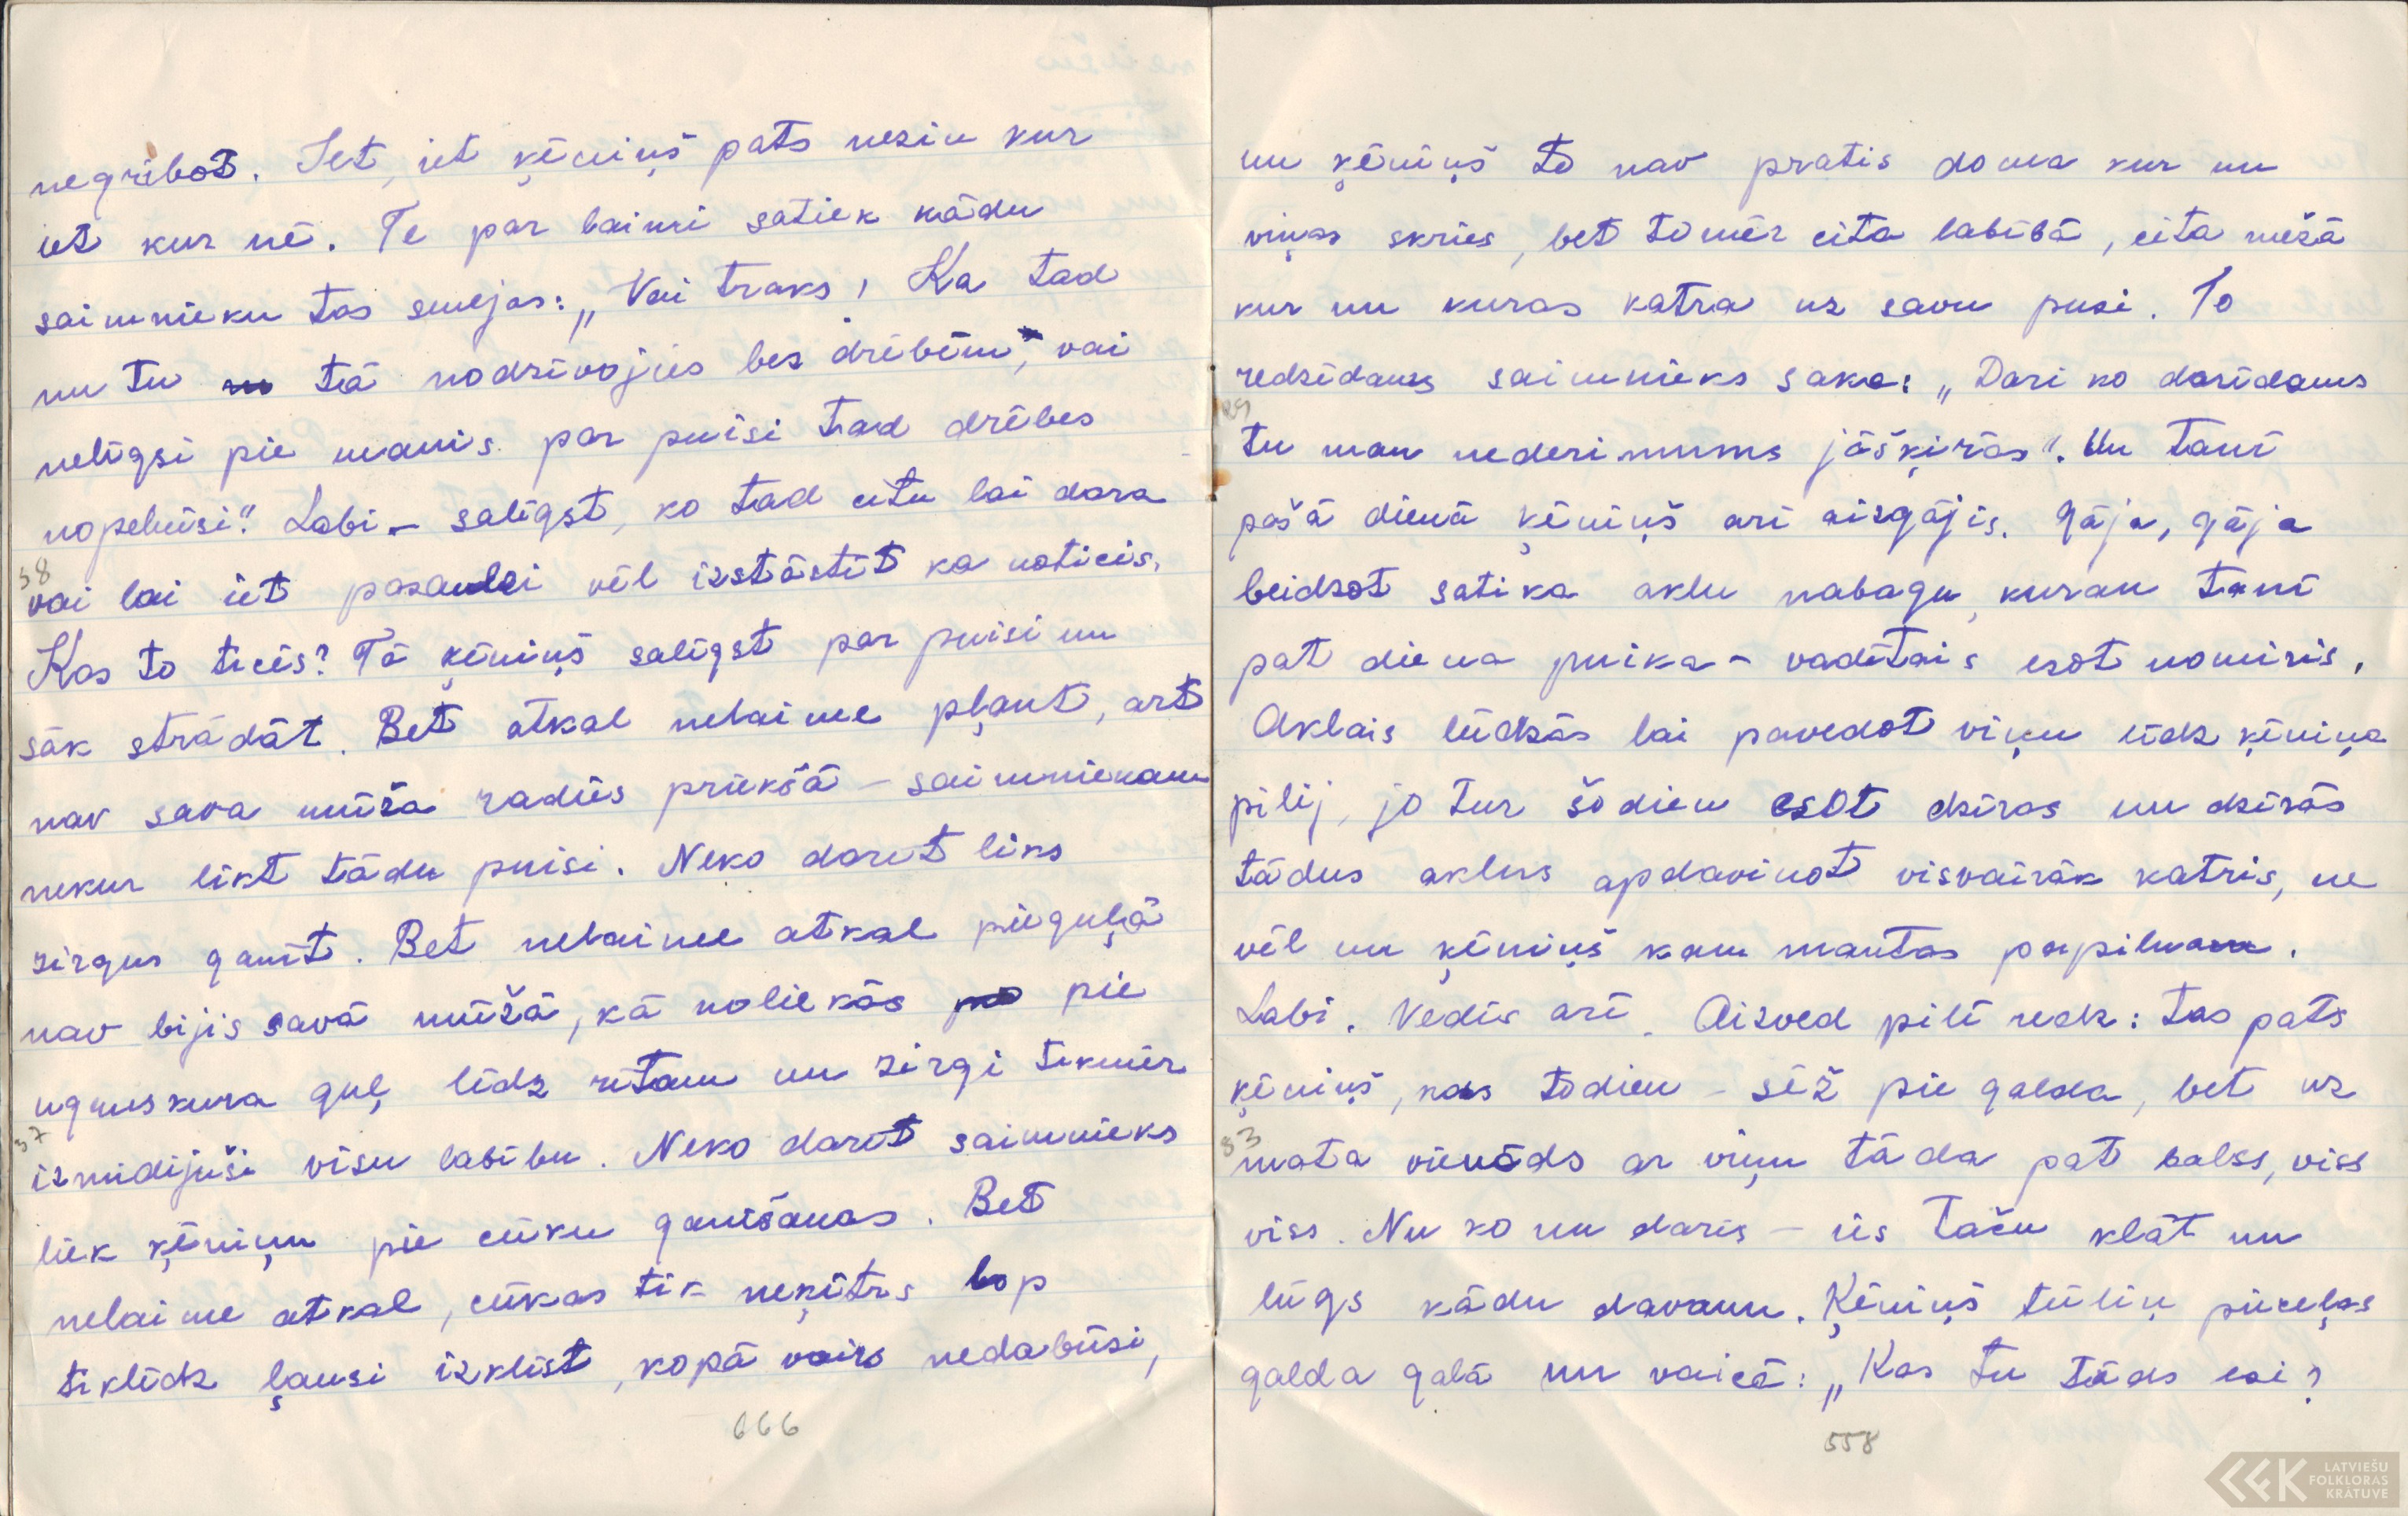 negribot. Iet, iet ķēniņš pats nezin kur
iet kur nē. Te par laimi satiek kādu
saimnieku tas smejas: „Vai traks, Ka tad
nu tu tā nodzīvojies bez drēbēm, vai
nelīgsi pie manis par puisi tad drēbes
nopelnīsi." Labi – salīgst, ko tad citu lai dara
58
vai lai iet pasaulei vēl izstāstīt ka noticis,
Kas to ticēs? Tā ķēniņš salīgst par puisi un
sāk strādāt. Bet atkal nelaime pļaut, art
nav sava mūža radies priekšā – saimniekam
nekur likt tādu puisi. Neko darīt liks
zirgus ganīt. Bet nelaime atkal pieguļā
nav bijis savā mūžā, kā noliekās pie
ugunskura guļ līdz rītam un zirgi tikmēr
37
izmidijuši visu labību. Neko darīt saimnieks
liek ķēniņu pie cūku ganīšanas. Bet
nelaime atkal, cūkas tik neķītrs lop
tiklīdz ļausi izklīst, kopā vairs nedabūsi,
666
un ķēniņš to nav pratis doma kur nu
viņas skries, bet tomēr cita labībā, cita mežā
kur nu kuras katra uz savu pusi. To
redzēdams saimnieks saka: „Dari ko darīdams
tu man nederi mums jāšķirās". Un tanī
pašā dienā ķēniņš arī aizgājis. Gāja, gāja
beidzot satika aklu nabagu, kuram tanī
pat diena puika – vadītais esot nomiris,
Aklais lūdzās lai pavedot viņu līdz ķēniņa
pilij, jo tur šodien esot dzīras un dzīrās
tādus aklus apdavinot visvairāk katris, ne
vēl nu ķēniņš kam mantas papilnam.
Labi. Vedīs arī. Aizved pilī redz: tas pats
ķēniņš, kas todien – sēž pie galda, bet uz
33
mata vienāds ar viņu tāda pat balss, viss
viss. Nu ko nu darīs – ies taču klāt un
lūgs kādu davanu. Ķēniņš tūliņ pieceļas
galda galā un vaicā: „Kas tu tāds esi?
558
LATVIEŠU
FOLKLORAS
KRĀTUVE